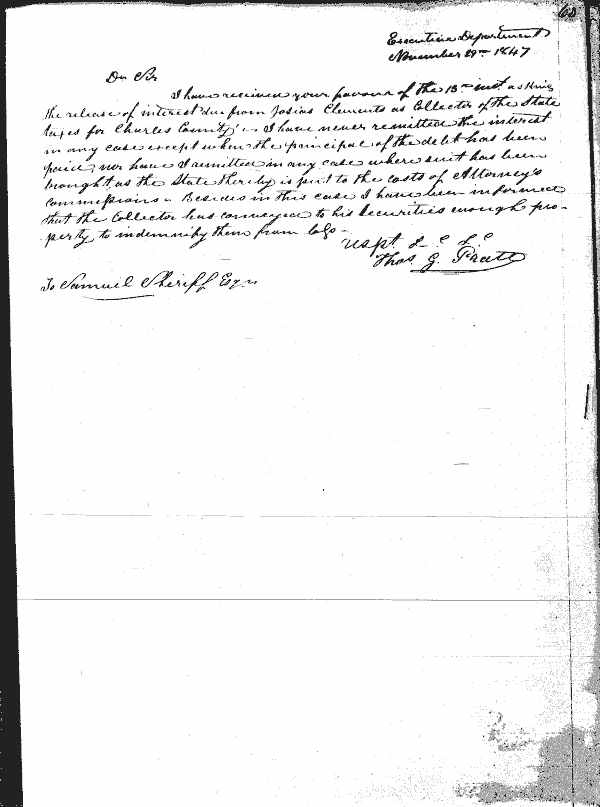 Executive Department
November 29th 1847
Dr Sir
I have received your favour of the 13th inst. asking
the release of interest due from Josias Clements as Collector of the State
taxes for Charles County. I have never remitted the interest
in any case except when the principal of the debt has been
paid, nor have I remitted in any case where suit has been
brought, as the State thereby is put to the costs of Attorney's
commissions. Besides in this case I have been informed
that the Collector has conveyed to his Securities enough pro-
perty to indemnify them from loss.
Thos. G. Pratt
To Samuel Sheriff Esqr.